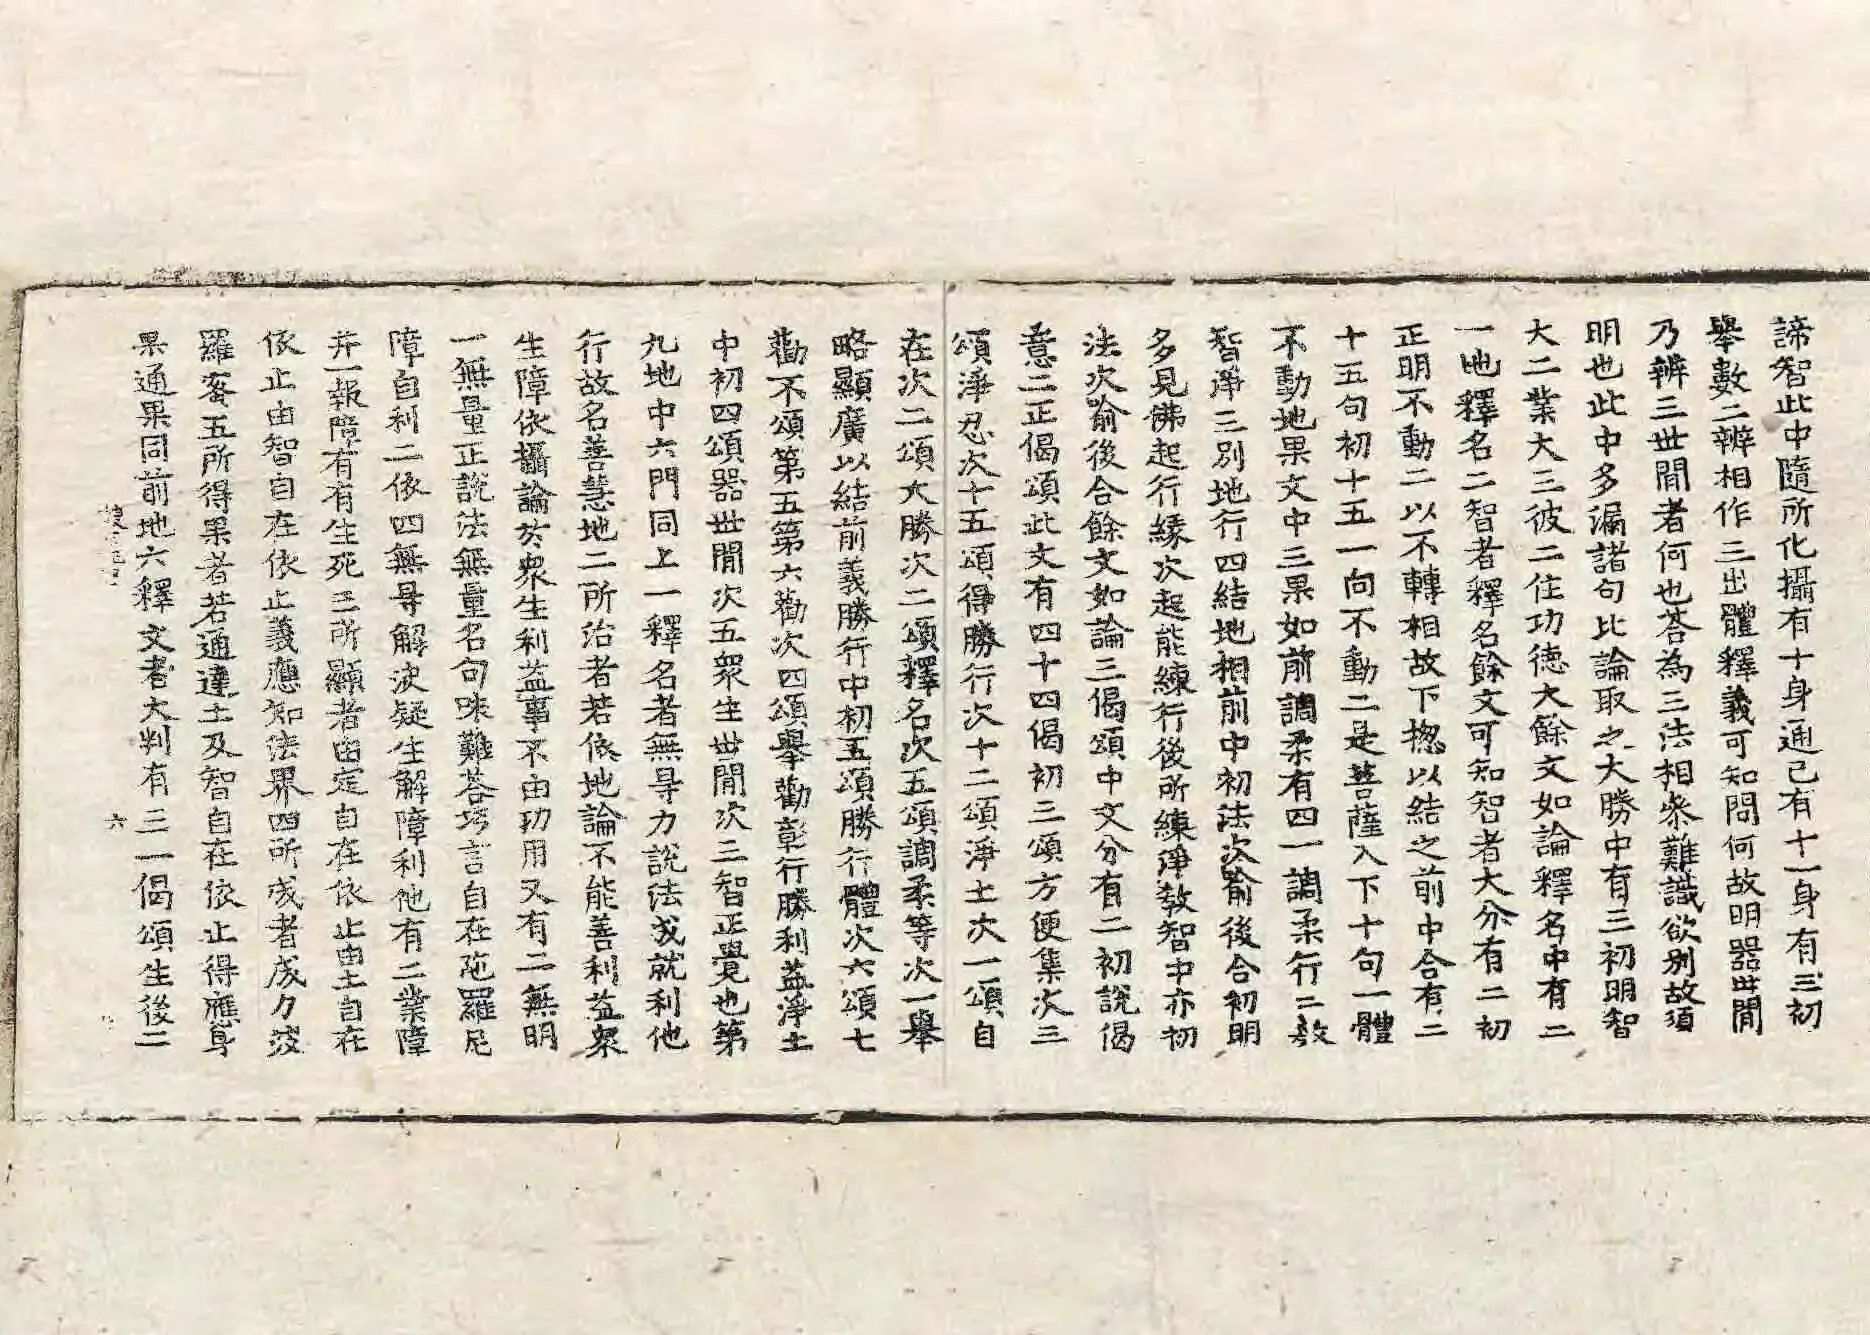 諦智此中隨所化攝有十身通己有十一身有三初
舉數二辨相作三出體釋義可知問何故明器世間
乃辨三世間者何也荅為三法相參難識欲別故須
明也此中多漏諸句比論取之大勝中有三初明智
大二業大三彼二住功德大餘文如論釋名中有二
一地釋名二智者釋名餘文可知智者大分有二初
正明不動二以不轉相故下揔以結之前中合有二
十五句初十五一向不動二是菩薩入下十句一體
不動地果文中三果如前調柔有四一調柔行二教
智淨三別地行四結地相前中初法次喻後合初明
多見佛起行緣次起能練行後所練淨教智中亦初
法次喻後合餘文如論三偈頌中文分有二初說偈
意二正偈頌此文有四十四偈初三頌方便集次三
頌淨忍次十五頌得勝行次十二頌淨土次一頌自
在次二頌大勝次二頌釋名次五頌調柔等次一舉
略顯廣以結前義勝行中初五頌勝行體次六頌七
勸不頌第五第六勸次四頌舉勸彰行勝利益淨土
中初四頌器世間次五眾生世間次三智正覺也第
九地中六門同上一釋名者無㝵力說法成就利他
行故名善慧地二所治者若依地論不能善利益眾
生障依攝論於眾生利益事不由功用又有二無明
一無量正說法無量名句味難荅巧言自在陁羅尼
障自利二依四無㝵解決疑生解障利他有二業障
并一報障有有生死三所顯者由定自在依止由土自在
依止由智自在依止義應知法界四所成者成力波
羅蜜五所得果者若通達土及智自在依止得應身
果通果同前地六釋文者大判有三一偈頌生後二
六